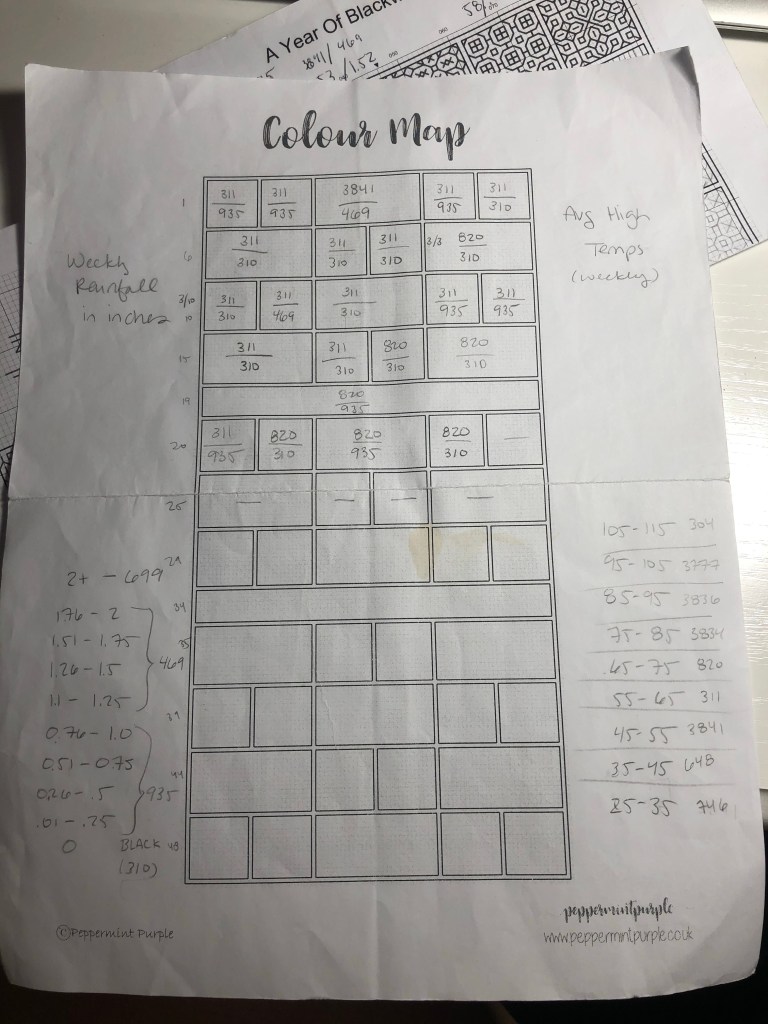 A Year Of Blackw
58/
3841/469
53/152
Colour Map
1 311/935 311/935 3841/469 311/935 311/310
6 311/310 311/310 311/310 3/3 820/310
3/10
10 311/310 311/469 311/310 311/935 311/935
15 311/310 311/310 820/310 820/310
19 820/935
20 311/935 820/310 820/935 820/310 —
25 — — — —
29
34
35
39
44
48
Weekly
Rainfall
in inches
2+ - 699
1.76 - 2
1.51 - 1.75
1.26 - 1.5
1.1 - 1.25
469
0.76 - 1.0
0.51 - 0.75
0.26 - .5
.01 - .25
935
0 BLACK
(310)
Avg High
Temps
(weekly)
105-115 304
95-105 3777
85-95 3836
75-85 3834
65-75 820
55-65 311
45-55 3841
35-45 648
25-35 746
©Peppermint Purple
peppermintpurple
www.peppermintpurple.co.uk